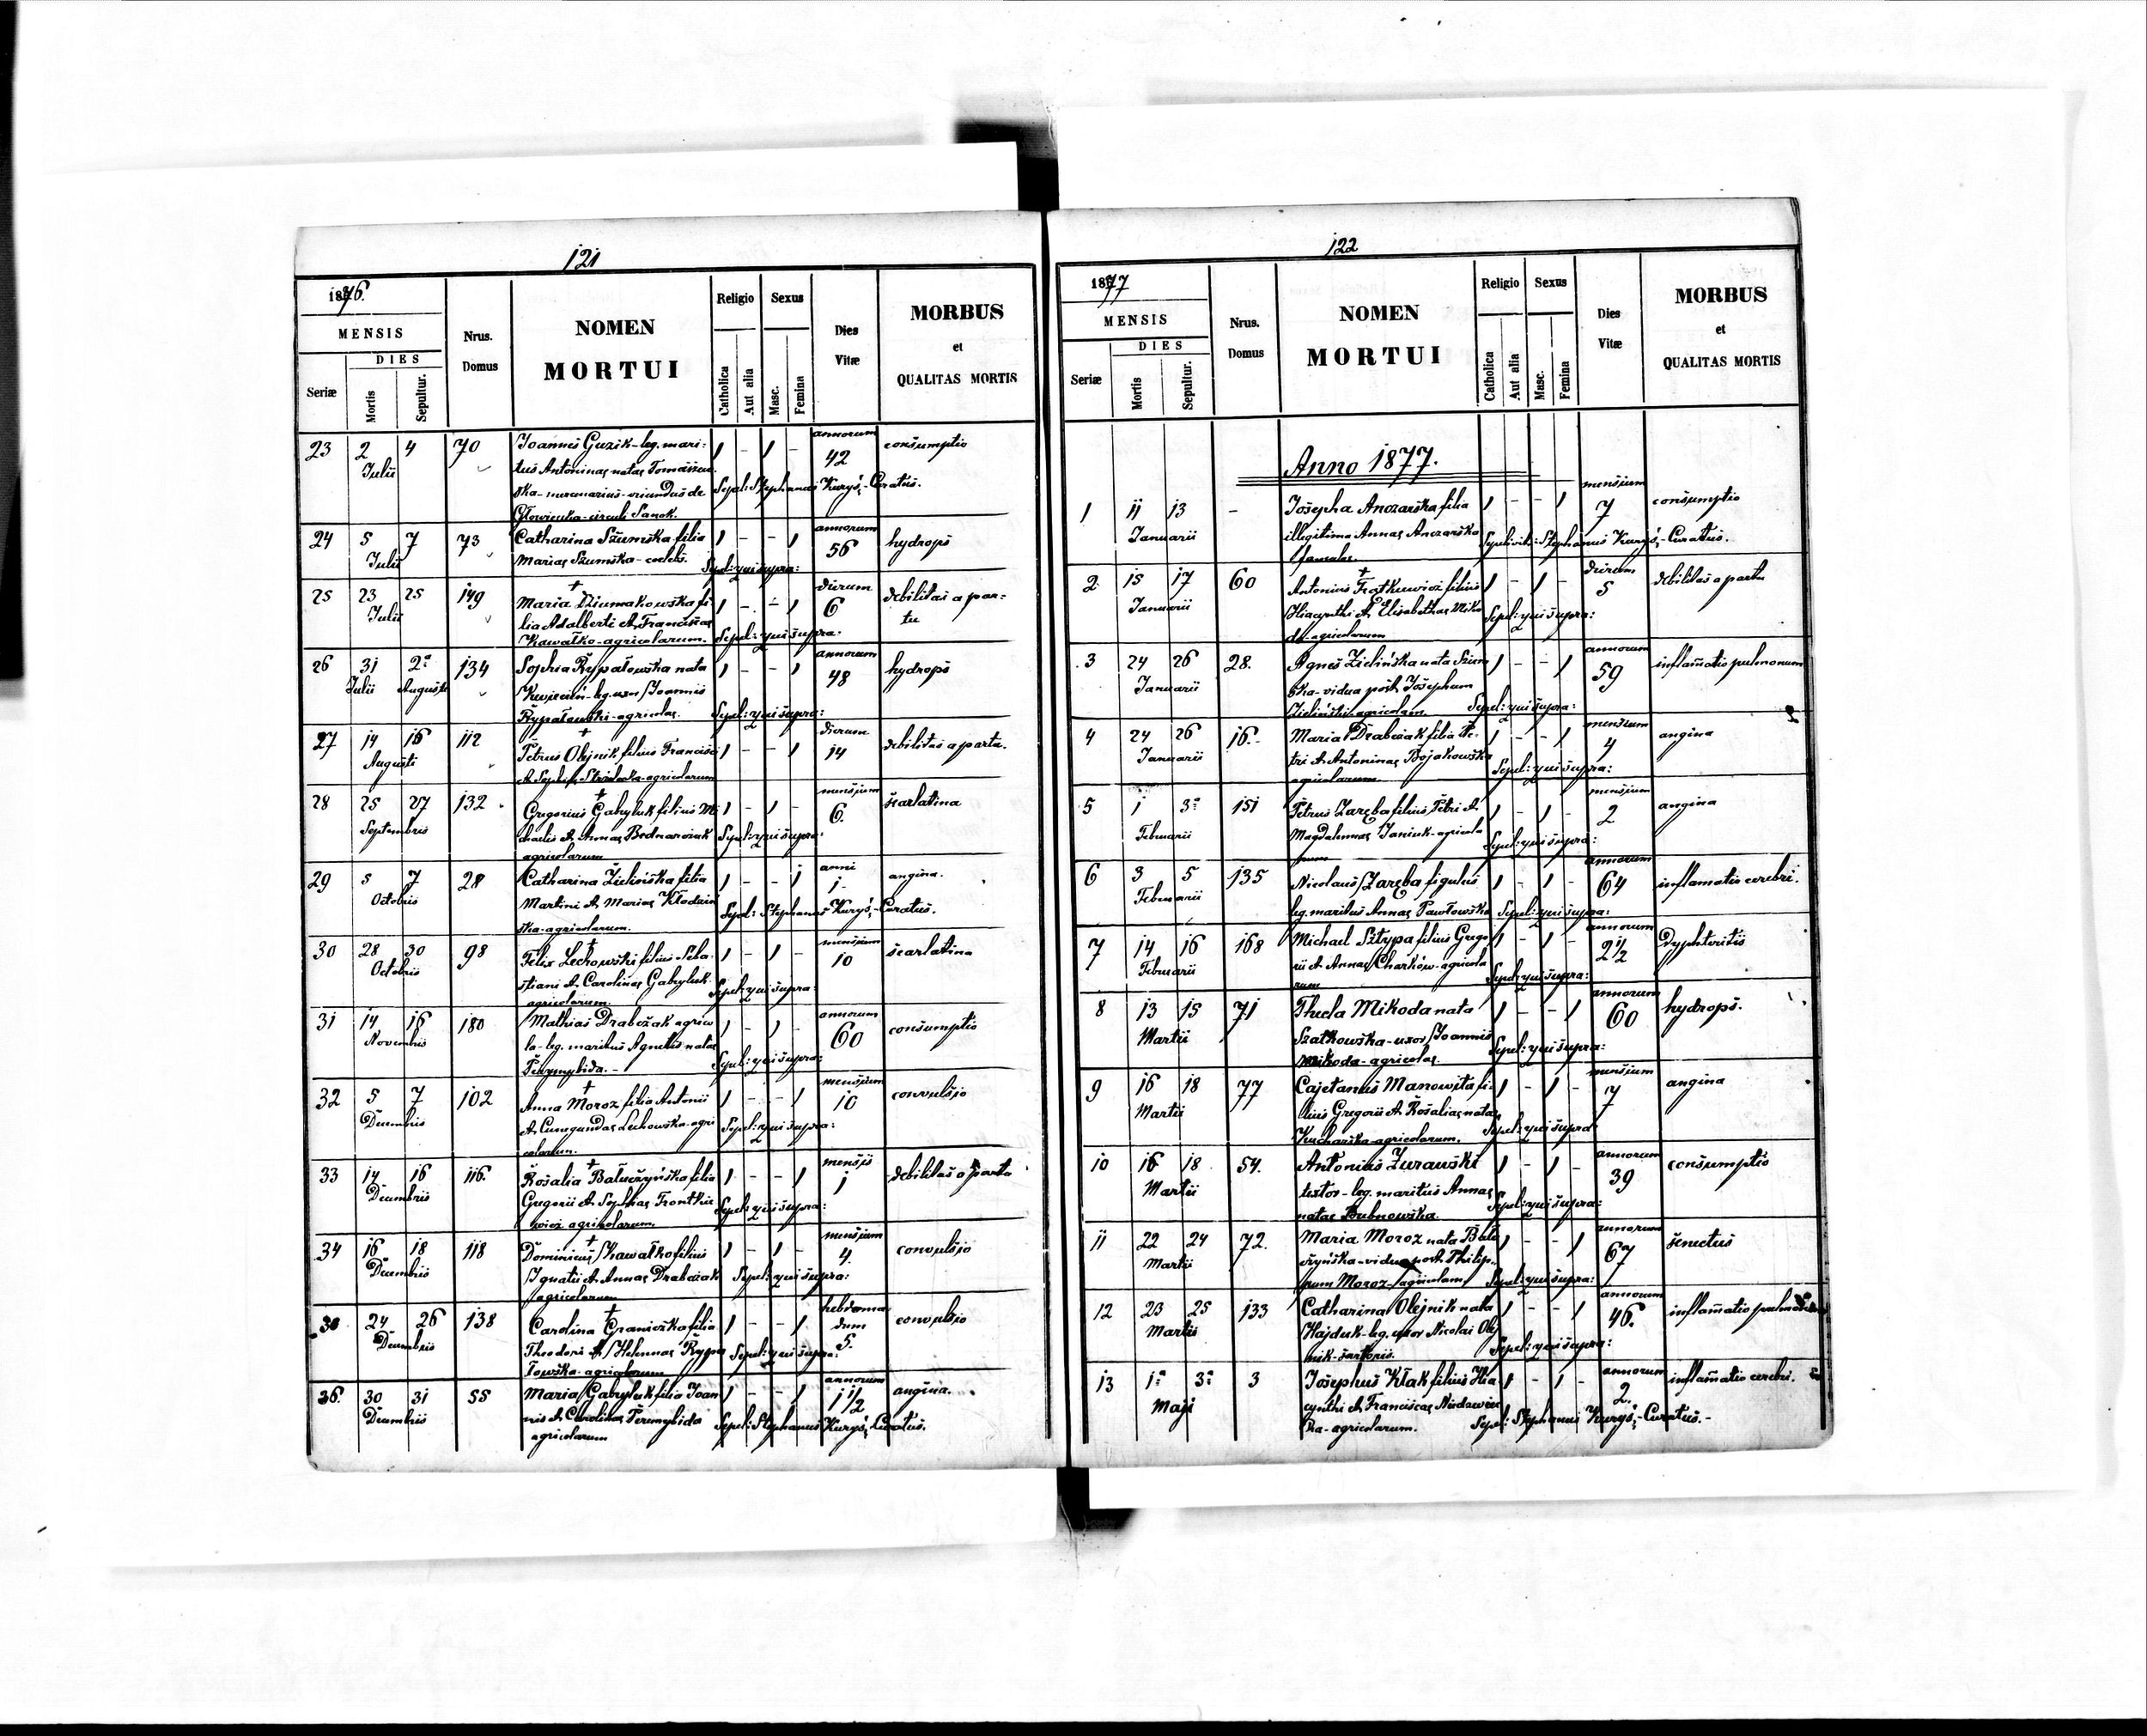 121
1876.
MENSIS
DIES
Seriæ
Mortis
Sepultur.
Nrus.
Domus
NOMEN
MORTUI
Religio
Sexus
Catholica
Aut alia
Masc.
Femina
Dies
Vitæ
MORBUS
et
QUALITAS MORTIS
23 2 4 70 Joannes Guzik - leg. mari: 1 - 1 - annorum 42 consumptio
Julii
tus Antoninae natae
oriundus de Sepel: Stephanus Kuryś, - Curatus.
circuli Sanok.
24 5 7 73 Catharina Szumska filia 1 - - 1 annorum 56 hydrops
Julii
Mariae Szumska - coelebs. Sepel: qui supra:
25 23 25 149 Maria Dziumakowska fi 1 - - 1 dierum 6 debilitas a par:
Julii tu
lia Adalberti & Franciscae
Kawałko - agricolarum. Sepel: qui supra.
26 31 2 134 Sophia Rypałowska nata 1 - - 1 annorum 48 hydrops
Julii Augusti
Kwiecień - leg. uxor Joannis
Rypałowski - agricolae. Sepel: qui supra:
27 14 16 112 Petrus Olejnik filius Francisci 1 - - 1 dierum 14 debilitas a partu.
Augusti
& Sophiae agricolarum
28 25 27 132 Gregorius Gabryluk filius Mi 1 - 1 - mensium 6. scarlatina
Septembris
chaelis & Annae Bednarczuk Sepel: qui supra.
agricolarum
29 5 7 28 Catharina Zielińska filia 1 - - 1 anni 1 angina.
Octobris
Martini & Mariae Kłodzin Sepel: Stephanus Kuryś, - Curatus.
ska - agricolarum.
30 28 30 98 Felix Lechowski filius Seba 1 - 1 - mensium 10 scarlatina
Octobris
stiani & Carolinae Gabryluk Sepel: qui supra:
agricolarum.
31 14 16 180 Mathias Drabczak agrico 1 - 1 - annorum 60 consumptio
Novembris
la - leg. maritus Agnetis natae Sepel: qui supra:
32 5 7 102 Anna Moroz filia Antonii 1 - - 1 mensium 10 convulsio
Decembris
& Cunegundae Lechowska - agri Sepel: qui supra:
colarum.
33 14 16 116. Rosalia Batuczyńska filia 1 - - 1 mensis 1 debilitas a partu
Decembris
Gregorii & Sophiae Frontkie Sepel: qui supra:
wicz agricolarum.
34 16 18 118 Dominicus Kawałko filius 1 - 1 - mensium 4. convulsio
Decembris
Ignatii & Annae Drabczak Sepel: qui supra:
agricolarum
24 26 138 Carolina Graniczka filia 1 - - 1 hebdoma
dum 5. convulsio
Decembris
Theodori & Helennae Rypa Sepel: qui supra:
łowska - agricolarum
36. 30 31 55 Maria Gabryluk filia Joan 1 - - 1 annorum 1 1/2 angina.
Decembris
nis & Carolinae Sepel: Stephanus Kuryś, Curatus.
agricolarum
122
1877
MENSIS
DIES
Seriæ
Mortis
Sepultur.
Nrus.
Domus
NOMEN
MORTUI
Religio
Sexus
Catholica
Aut alia
Masc.
Femina
Dies
Vitæ
MORBUS
et
QUALITAS MORTIS
Anno 1877.
1 11 13 - Josepha filia 1 - - 1 mensium 7 consumptio
Januarii
illegitima Annae Stephanus Kuryś, - Curatus.
famulae
2 15 17 60 Antonius filius 1 - 1 - dierum 5 debilitas a partu
Januarii
Hiacynthi & Elisabethae Miko Sepel: qui supra:
da - agricolarum
3 24 26 28. Agnes Zielińska nata Szum 1 - - 1 annorum 59 inflam̄atio pulmonum
Januarii
ska - vidua post Josephum
Zieliński agricolam. Sepel: qui supra:
4 24 26 16. Maria Drabczak filia Pe 1 - - 1 mensium 4 angina
Januarii
tri & Antoninae Bojakowska Sepel: qui supra:
agricolarum
5 1 3 151 Petrus Zaręba filius Petri & 1 - 1 - mensium 2 angina
Februarii
Magdalennae Janiuk - agricola Sepel: qui supra:
rum
6 3 5 135 Nicolaus Zaręba figulus 1 - 1 - annorum 64 inflamatio cerebri.
Februarii
leg. maritus Annae Pawłowska Sepel: qui supra:
7 14 16 168 Michael Sztypa filius Grego 1 - 1 - annorum 2 1/2 Dyphteritis
Februarii
rii & Annae Charków - agricola Sepel: qui supra:
rum
8 13 15 71 Thecla Mikoda nata 1 - - 1 annorum 60 hydrops.
Martii
Szatkowska - uxor Joannis Sepel: qui supra:
Mikoda - agricolae.
9 16 18 77 Cajetanus Manowita fi 1 - 1 - mensium 7 angina
Martii
lius Gregorii & Rosaliae natae Sepel: qui supra
Kucharska - agricolarum.
10 16 18 54. Antonius Żurawski 1 - 1 - annorum 39 consumptio
Martii
textor - leg. maritus Annae Sepel: qui supra:
natae Bubnowska.
11 22 24 72. Maria Moroz nata Batu 1 - - 1 annorum 67 senectus
Martii
czyńska - vidua post Philip
pum Moroz - agricolam Sepel: qui supra:
12 23 25 133 Catharina Olejnik nata 1 - - 1 annorum 46. inflam̄atio pulmonum
Martii
Hajduk - leg. uxor Nicolai Olej
nik - sartoris. Sepel: qui supra:
13 1 3 3 Josephus Kłak filius Hia 1 - 1 - annorum 2. inflam̄atio cerebri.
Maji
cynthi & Franciscae Niedzwiec Sepel: Stephanus Kuryś, - Curatus. -
ka - agricolarum.